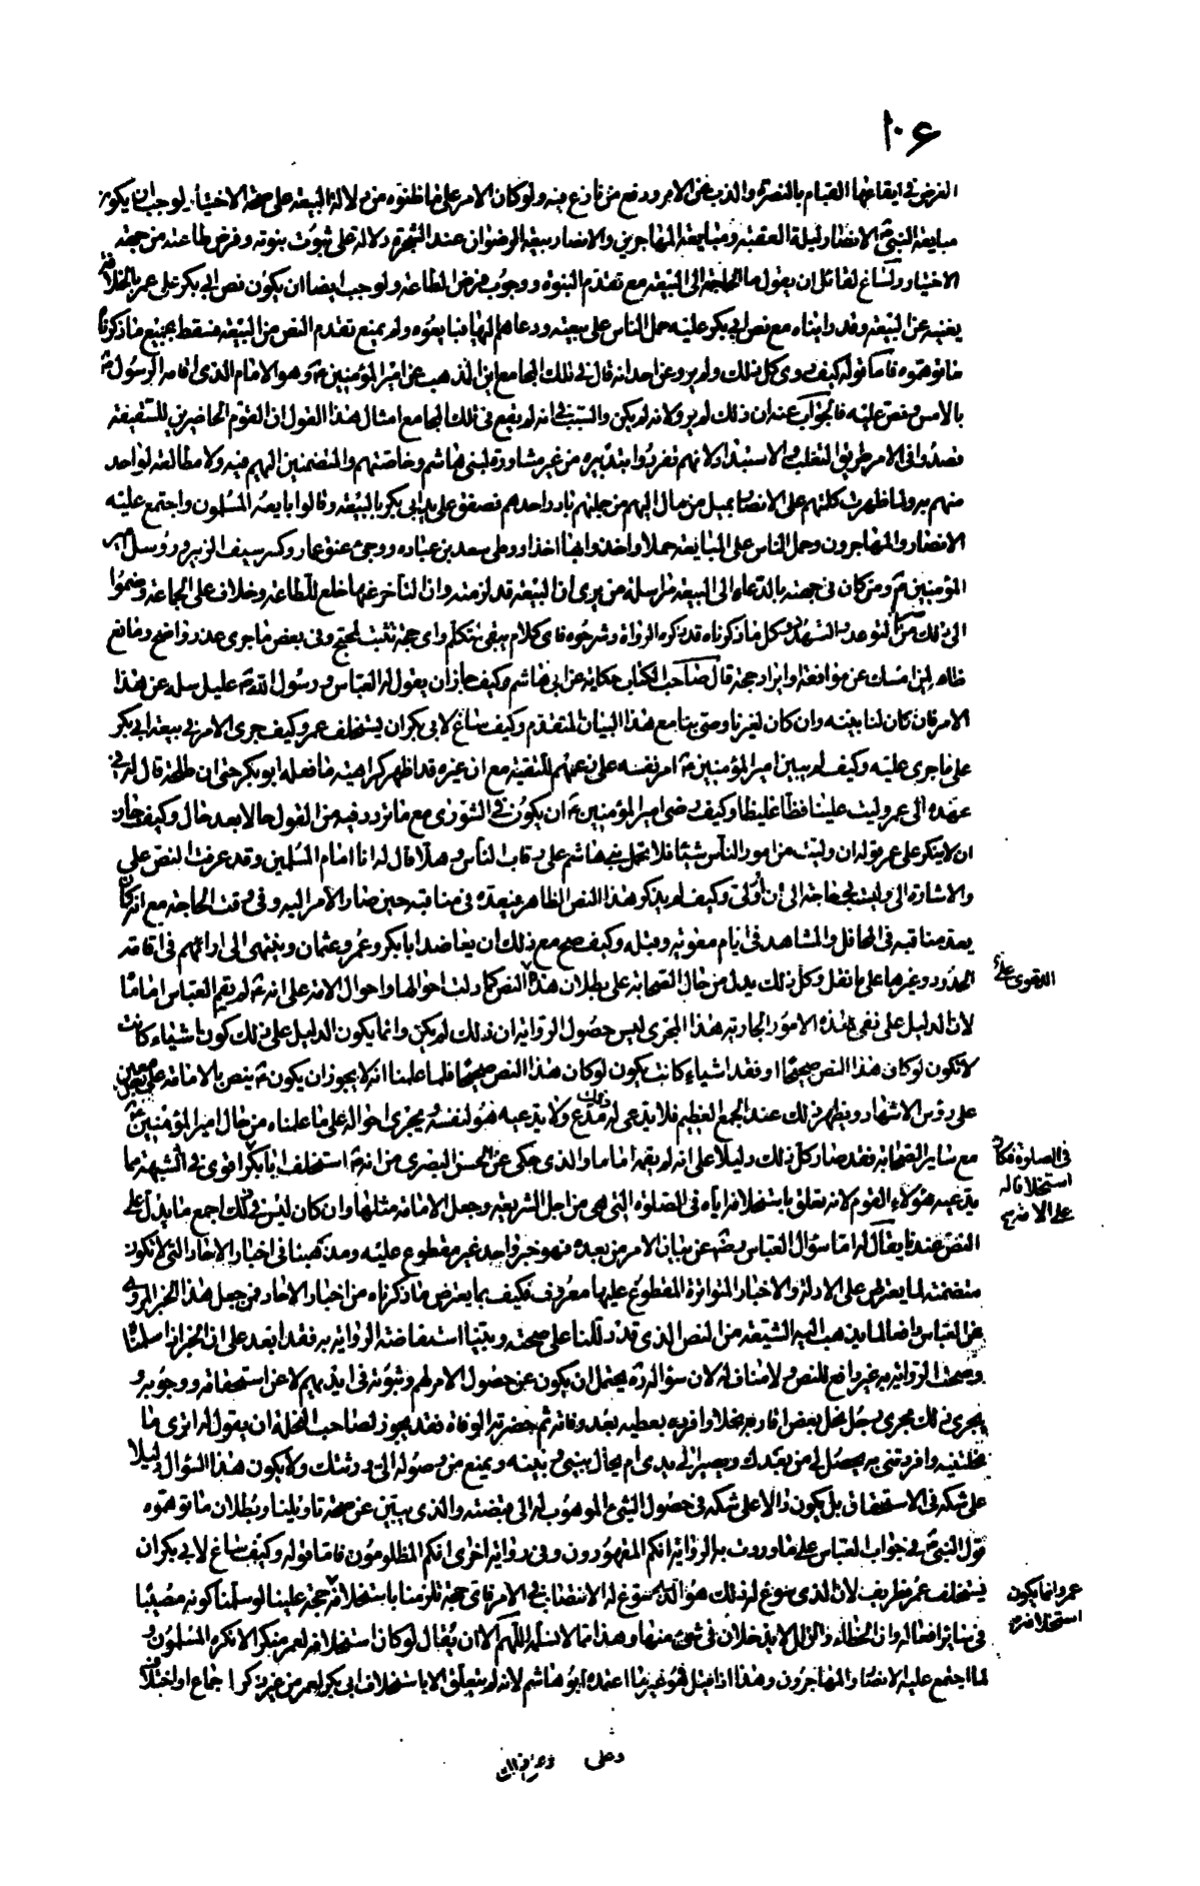 ١٠٦
الغرض في ايقاعها القيام بالنصرة والذب عن الامر ودفع من نازع فيه ولو كان الامر على ما ظنوه من دلالة البيعة على صحة الاختيار لوجب ان يكون
مبايعة النبي ص الانصار ليلة العقبة ومبايعة المهاجرين والانصار بيعة الرضوان عند الشجرة دلالة على ثبوت نبوته وفرض طاعته من جهة
الاختيار ولساغ لقائل ان يقول ما الحاجة الى البيعة مع تقدم النبوة ووجوب فرض الطاعة ولوجب ايضا ان يكون نص ابي بكر على عمر بالخلافة
يغنيه عن البيعة وقد رايناه مع نص ابي بكر عليه حمل الناس على بيعته ودعاهم اليها فبايعوه ولم يمنع تقدم النص من البيعة فسقط بجميع ما ذكرناه
ما توهموه فاما قوله كيف روى كل ذلك ولم يرو عن احد انه قال في تلك المجامع اين الذهب عن امير المؤمنين ع وهو الامام الذي اقامه الرسول ص
بالامس ونص عليه فالجواب عنه ان ذلك لم يرو لانه لم يكن والسبب في انه لم يقع في تلك المجامع امثال هذا القول ان القوم الحاضرين للسقيفة
قصدوا في الامر طريق التغلب والاستبداد لانهم تفردوا بتدبيره من غير مشاورة لبني هاشم وخاصتهم والمنضمنين اليهم فيه ولا مطالعة لواحد
منهم به ولما ظهرت كلمتهم على الانصار بميل من مال اليهم من جملتهم بادر احدهم فصفق على يد ابي بكر بالبيعة وقالوا بايعه المسلمون واجتمع عليه
الانصار والمهاجرون وحمل الناس على المبايعة حملا واخذوا بها اخذا ووطى سعد بن عبادة ووجئ عنق عمار وكسر سيف الزبير وروسل امير
المؤمنين ع ومن كان في جهته بالدعاء الى البيعة مراسلة من يرى ان البيعة قد لزمته وان التأخر عنها خلع للطاعة وخلاف على الجماعة وضموا
الى ذلك من التوعد والتهدد كل ما ذكرناه قد ذكره الرواة وشرحوه فاي كلام يبقى لمتكلم واي حجة تثبت لمحتج وفي بعض ما جرى عذر واضح ومانع
ظاهر لمن امسك عن موافقة وايراد حجة قال صاحب الكتاب حكاية عن ابي هاشم وكيف جاز ان يقول له العباس ورسول الله ص عليل سله عن هذا
الامر فان كان لنا بينه وان كان لغيرنا وصى بنا مع هذا البيان المتقدم وكيف ساغ لابي بكر ان يستخلف عمر وكيف جرى الامر في بيعة ابي بكر
على ما جرى عليه وكيف لم يبين امير المؤمنين ع امر نفسه على زعمهم للتقية مع ان غيره قد اظهر كراهية ما فعله ابو بكر حتى ان طلحة قال له في
عهده الى عمر وليت علينا فظا غليظا وكيف رضى امير المؤمنين ع ان يكون في الشورى مع ما تردد فيه من القول حالا بعد حال وكيف جاز
ان لا ينكر على عمر قوله ان وليت من امور الناس شيئا فلا تحمل بني هاشم على رقاب الناس وهلا قال له انا امام المسلمين وقد عرفت النص علي
والاشارة الي وليت بحاجة الى ان اولى وكيف لم يذكر هذا النص الظاهر فيعده في مناقبه حين صار الامر اليه وفي وقت الحاجة مع انه كان
يعد مناقبه في المحافل والمشاهد في ايام معوية وقبله وكيف صح مع ذلك ان يعاضد ابا بكر وعمر وعثمان وينتهي الى ارائهم في اقامة
الحدود وغيرها على ما نقل وكل ذلك يدل من حال الصحابة على بطلان هذه النص كما دلت احوالها واحوال الامة على انه ع لم يقم العباس اماما
لان الدليل على نفي هذه الامور الجارية هذا المجرى ليس حصول الرواية ان ذلك لم يكن وانما يكون الدليل على ذلك كون اشياء كانت
لا تكون لو كان هذا النص صحيحا او فقد اشياء كانت تكون لو كان هذا النص صحيحا فلما علمنا انه لا يجوز ان يكون ع ينص بالامامة على معين
على رؤس الاشهاد ويظهر ذلك عند الجمع العظيم فلا يدعى له مدع ولا يدعيه هو لنفسه ويجري احواله على ما علمناه من حال امير المؤمنين ع
مع سائر الصحابة فقد صار كل ذلك دليلا على انه لم يقم اماما والذي حكى عن الحسن البصري من انه ص استخلف ابا بكر اقوى في الشبهة مما
يدعيه هؤلاء القوم لانه تعلق باستخلافه اياه في الصلوة التي هي من اجل الشريعة وجعل الامامة مثلها وان كان ليس في ذلك اجمع ما يدل على
النص عندنا يقال له اما سؤال العباس رض عن بيان الامر من بعده فهو خبر واحد غير مقطوع عليه ومذهبنا في اخبار الاحاد التي لا تكون
متضمنة لما يعترض على الادلة والاخبار المتواترة المقطوع عليها معروف فكيف بما يعترض ما ذكرناه من اخبار الاحاد فمن جعل هذا الخبر المروي
عن العباس دافعا لما يذهب اليه الشيعة من النص الذي قد دللنا على صحته وبينا استفاضة الرواية به فقد ابعد على ان الخبر اذا سلمنا
وصحت الرواية به غير دافع للنص ولا مناف له لان سؤاله ره يحتمل ان يكون عن حصول الامر لهم وثبوته في ايديهم لا عن استحقاقه ووجوبه و
يجري ذلك مجرى رجل نحل بعض اقاربه نحلا وافرده بعطية بعد وفاته ثم حضرته الوفاة فقد يجوز لصاحب النحلة ان يقول له اترى ما
نحلتنيه وافردتني به يحصل لي من بعدك ويصير الى يدي ام يحال بيني وبينه ويمنع من وصوله الى ورثتك ولا يكون هذا السؤال دليلا
على شكه في الاستحقاق بل يكون دالا على شكه في حصول الشئ الموهوب له الى قبضته والذي يبين عن صحة تاويلنا وبطلان ما توهموه
قول النبي ص في جواب العباس على ما وردت به الرواية انكم المقهورون وفي رواية اخرى انكم المظلومون فاما قوله وكيف ساغ لابي بكر ان
يستخلف عمر فطريف لان الذي سوغ له ذلك هو الذي سوغ له الانتصاب في الامر فاي حجة تلزمنا باستخلافه حجة علينا لو سلمنا كونه مصيبا
في سائر افعاله وان الخطاء والزلل لا يدخلان في شئ منها وهذا مما لا نسلمه اللهم الا ان يقال لو كان استخلافه لعمر منكرا لانكره المسلمون و
لما اجتمع عليه الانصار والمهاجرون وهذا اذا قيل فهو غير ما اعتمده ابو هاشم لانه لم يتعلق الا باستخلاف ابي بكر لعمر من غير ذكر اجماع او اختلاف
الاقوى على
في الصلوة فكان
استخلافا له
على الامة
عمر وانما يكون
استخلافه
وعلى